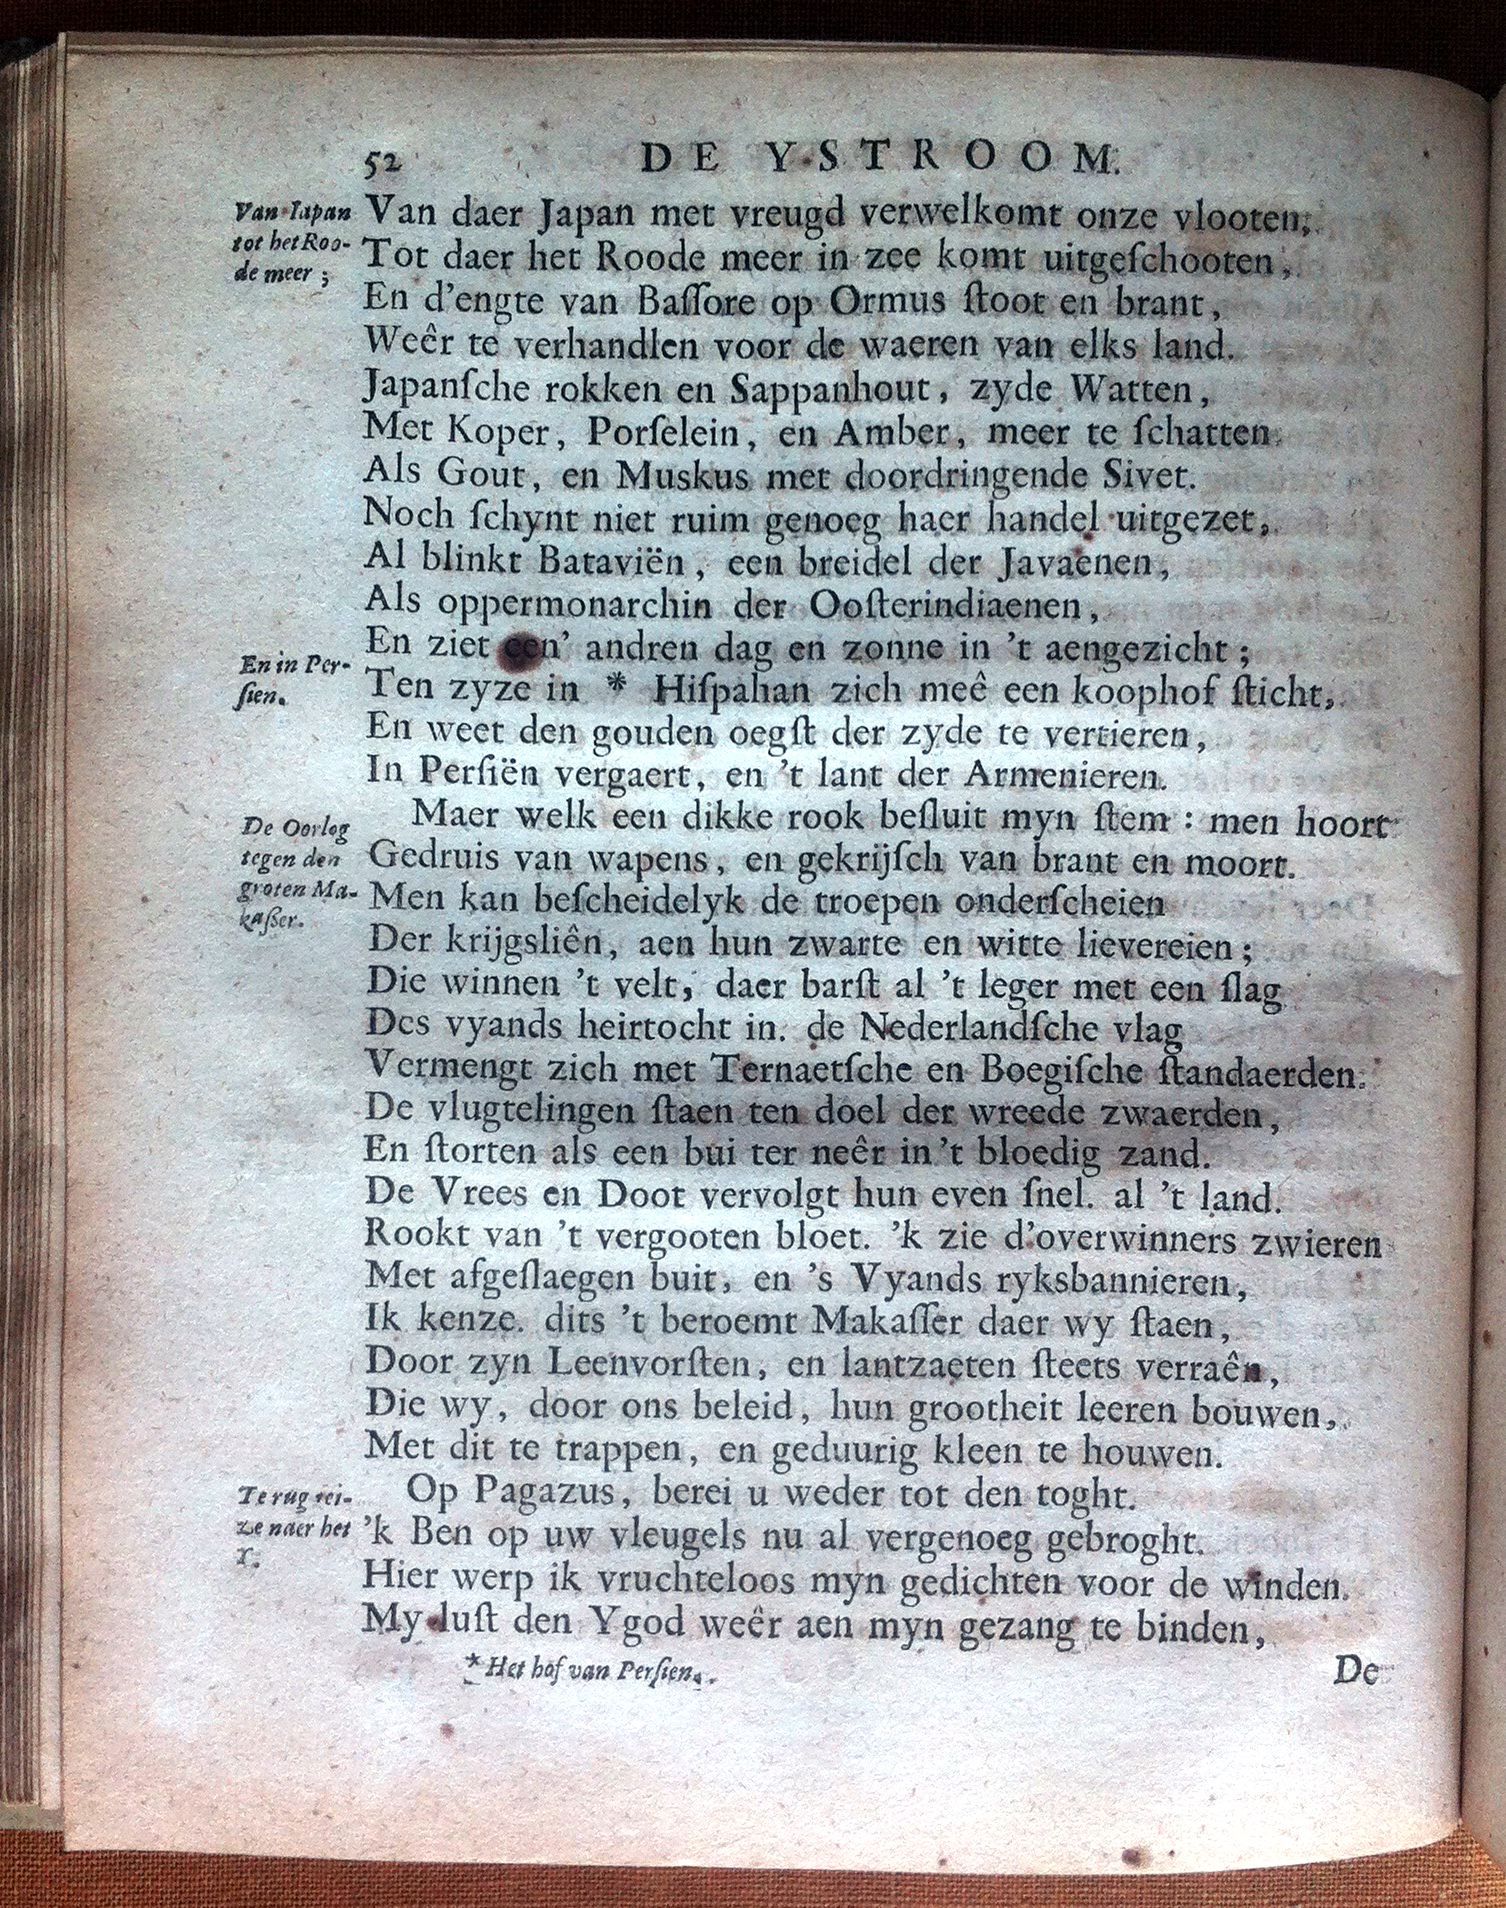 52 DE YSTROOM.
Van Iapan
tot het Roo-
de meer;
Van daer Japan met vreugd verwelkomt onze vlooten,
Tot daer het Roode meer in zee komt uitgeſchooten,
En d'engte van Baſſore op Ormus ſtoot en brant,
Weêr te verhandlen voor de waeren van elks land.
Japanſche rokken en Sappanhout, zyde Watten,
Met Koper, Porſelein, en Amber, meer te ſchatten
Als Gout, en Muskus met doordringende Sivet.
Noch ſchynt niet ruim genoeg haer handel uitgezet,
Al blinkt Bataviën, een breidel der Javaenen,
Als oppermonarchin der Ooſterindiaenen,
En ziet een' andren dag en zonne in 't aengezicht;
En in Per-
ſien.
Ten zyze in * Hiſpahan zich meê een koophof ſticht,
En weet den gouden oegſt der zyde te vertieren,
In Perſiën vergaert, en 't lant der Armenieren.
De Oorlog
tegen den
groten Ma-
kaßer.
Maer welk een dikke rook beſluit myn ſtem: men hoort
Gedruis van wapens, en gekrijſch van brant en moort.
Men kan beſcheidelyk de troepen onderſcheien
Der krijgsliên, aen hun zwarte en witte lievereien;
Die winnen 't velt, daer barſt al 't leger met een ſlag
Des vyands heirtocht in. de Nederlandſche vlag
Vermengt zich met Ternaetſche en Boegiſche ſtandaerden.
De vlugtelingen ſtaen ten doel der wreede zwaerden,
En ſtorten als een bui ter neêr in 't bloedig zand.
De Vrees en Doot vervolgt hun even ſnel. al 't land.
Rookt van 't vergooten bloet. 'k zie d'overwinners zwieren
Met afgeſlaegen buit, en 's Vyands ryksbannieren,
Ik kenze. dits 't beroemt Makaſſer daer wy ſtaen,
Door zyn Leenvorſten, en lantzaeten ſteets verraên,
Die wy, door ons beleid, hun grootheit leeren bouwen,
Met dit te trappen, en geduurig kleen te houwen.
Terug rei-
ze naer het
Y.
Op Pagazus, berei u weder tot den toght.
'k Ben op uw vleugels nu al vergenoeg gebroght.
Hier werp ik vruchteloos myn gedichten voor de winden.
My luſt den Ygod weêr aen myn gezang te binden,
* Het hof van Perſien.
De